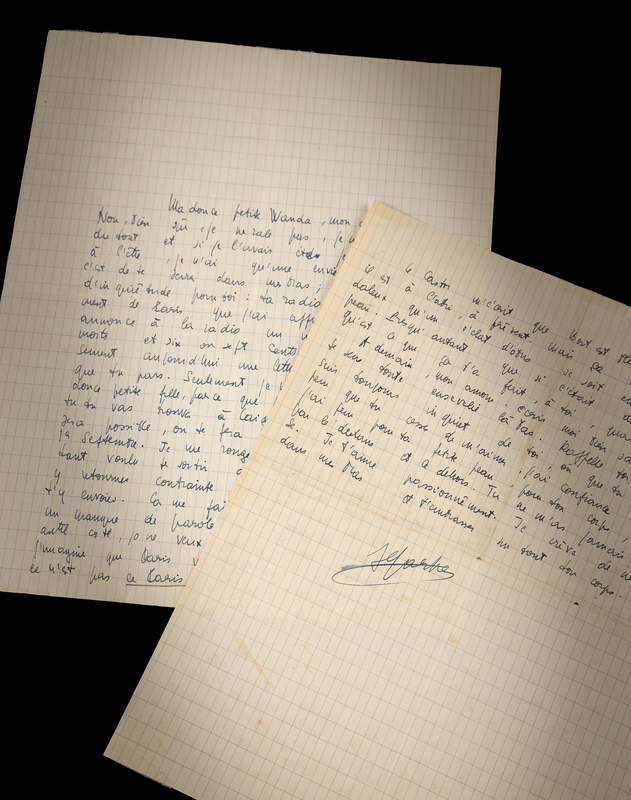 Ma douce petite Wanda, mon
Non, bien sûr, je ne rale pas, je
du tout et si je l'avais
à l'être, je n'ai qu'une envie
c'est de te serrer dans mes bras;
d'inquiétude pour toi : ta radio
ment de Paris que j'ai
annonce à la radio un
morts et six ou sept cents
sement aujourd'hui une lettre
que tu pars. Seulement je
douce petite fille, parce que
tu vas trouver à
sera possible, on te fera
19 Septembre. Je me ronge
tant voulu te sortir
y retournes contrainte
t'y envoies. Ca me fait
un manque de parole
autre côté, je ne veux
J'imagine que Paris
ce n'est pas ce Paris
le Castor m'écrit que tout est
il est à l'abri, à présent mais
daleux qu'un éclat d'obus se soit
peau. Lorsqu'autant que si c'était
qu'est ce que ça t'a fait, à toi,
A demain, mon amour, écris moi bien
te sens toute ensevelie là-bas. Rappelle
suis toujours inquiet de toi, ou que tu
peu que tu cesse de m'aimer, j'ai confiance
j'ai peur pour ta petite peau, pour ton corps,
par le dedans et le dehors. Tu ne m'as jamais
Je t'aime passionnément. Je crève de
dans mes bras et t'embrasse sur tout ton corps.
JPSartre